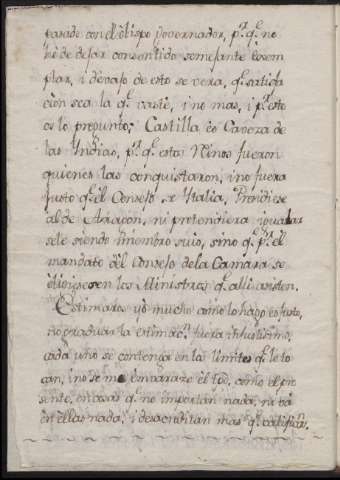 parado con el Obispo Governador, p.r q.e no
hè de dejar consentido semejante exem
plar, i devajo de esto se vera, q.e satisfa
cion sea la q.e vaste, i no mas, i p.r esto
os lo pregunto; Castilla es Caveza de
las Yndias, p.r q.e estos Reinos fueron
quienes las conquistaron, i no fuera
justo q.e el Consejo de Ytalia, Prendiese
al de Aragon, ni pretendiera igualar
sele siendo miembro suio, sino q.e p.r el
mandato del Consejo de la Camara se
eligiesen los Ministros q.e alli asisten.
Estimaràs yo mucho como lo hago es justo,
no graduar la estimac.n fuera injustisimo,
cada uno se contenga en los limites q.e le to
can, i no se me embarace el tpo, como el pre
sente, en cosas q.e no importan nada, ni và
en ellas nada, i desacreditan mas q.e califican.